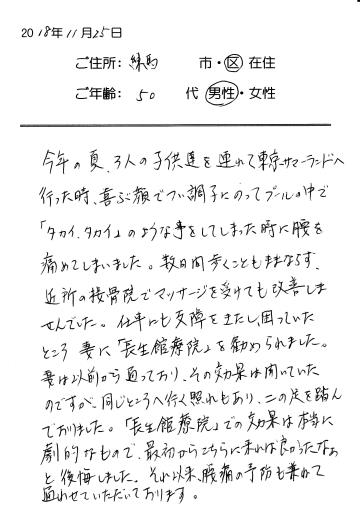 2018年11月25日
ご住所: 練馬 市・区 在住
ご年齢: 50 代 男性・女性
今年の夏、3人の子供達を連れて東京サマーランドへ
行った時、喜ぶ顔でつい調子にのってプールの中で
「タカイ、タカイ」のような事をしてしまった時に腰を
痛めてしまいました。数日間歩くこともままならず、
近所の接骨院でマッサージを受けても改善しま
せんでした。仕事にも支障をきたし、困っていた
ところ 妻に「長生館療院」を勧められました。
妻は以前から通っており、その効果は聞いていた
のですが、同じところへ行く照れもあり、二の足を踏ん
でおりました。「長生館療院」での効果は本当に
劇的なもので、最初からこちらに来れば良かったなぁ
と後悔しました。それ以来、腰痛の予防も兼ねて
通わせていただいております。